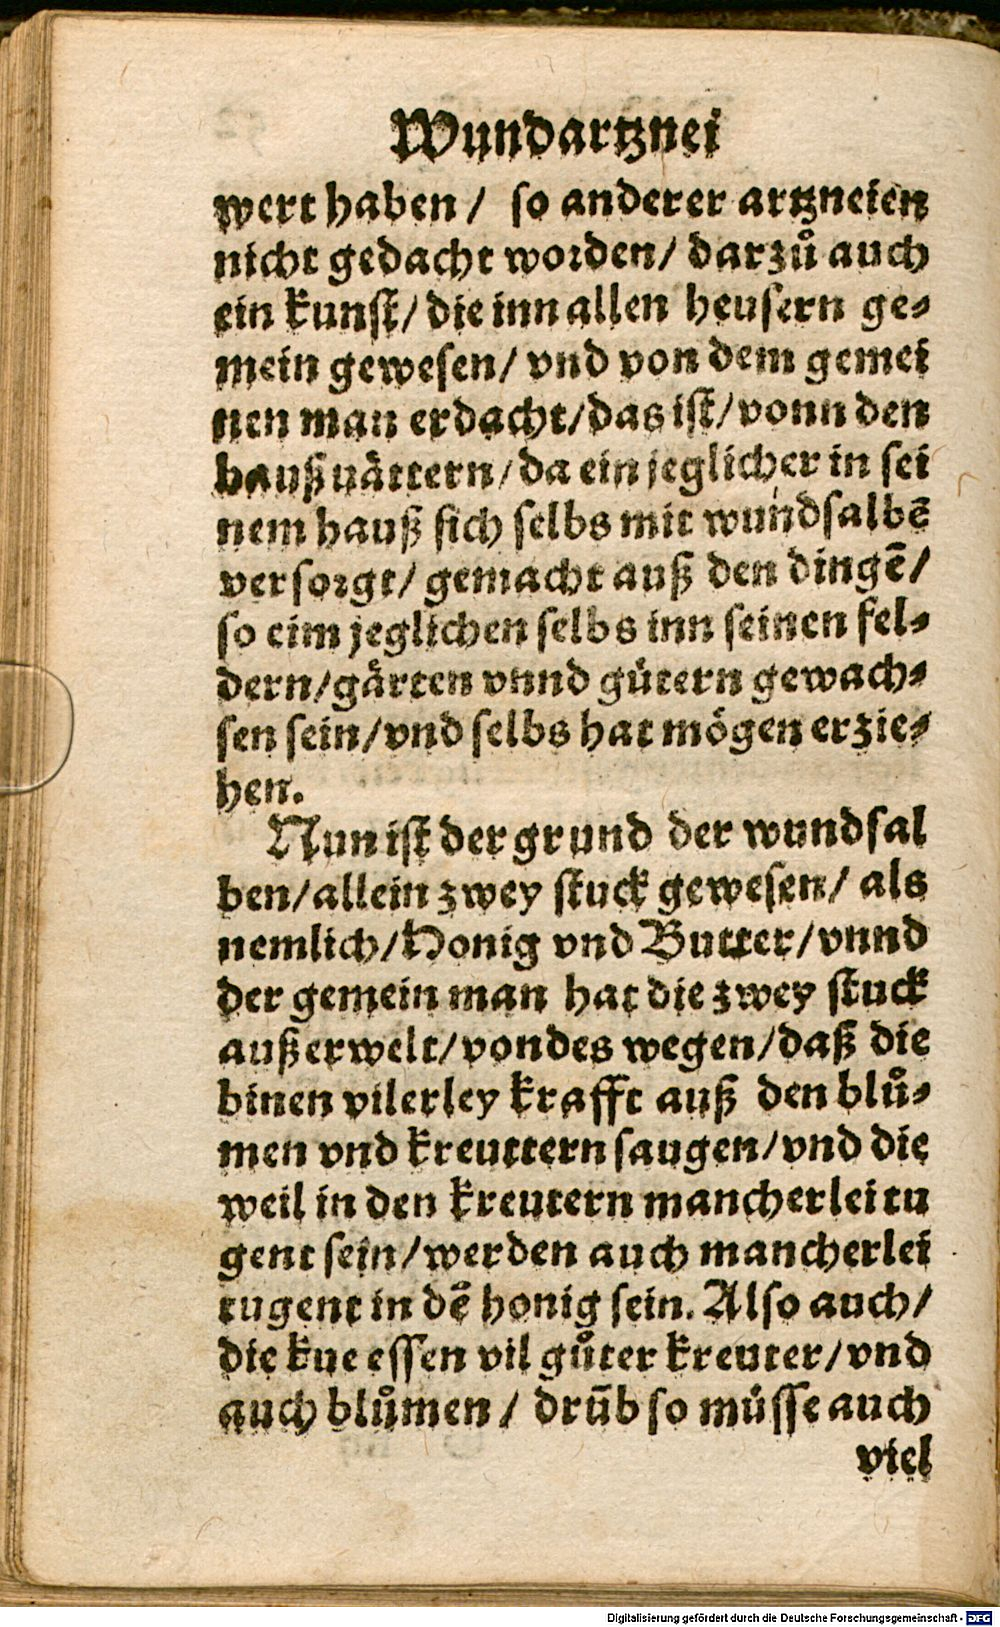 Wundartznei
wert haben / so anderer artzneien
nicht gedacht worden / darzuͦ auch
ein kunst / die inn allen heusern ge⸗
mein gewesen / vnd von dem gemei
nen man erdacht / das ist / vonn den
haußuättern / da ein jeglicher in sei
nem hauß sich selbs mit wundsalbē
versorgt / gemacht auß den dingē /
so eim jeglichen selbs inn seinen fel⸗
dern / gärten vnnd gütern gewach⸗
sen sein / vnd selbs hat mögen erzie⸗
hen.
Nun ist der grund der wundsal
ben / allein zwey stuck gewesen / als
nemlich / Honig vnd Butter / vnnd
der gemein man hat die zwey stuck
außerwelt / von des wegen / daß die
binen vilerley krafft auß den bluͦ⸗
men vnd kreuttern saugen / vnd die
weil in den kreutern mancherlei tu
gent sein / werden auch mancherlei
tugent in dē honig sein. Also auch /
die kue essen vil guͦter kreuter / vnd
auch bluͦmen / drūb so müsse auch
viel
Digitalisierung gefördert durch die Deutsche Forschungsgemeinschaft - DFG